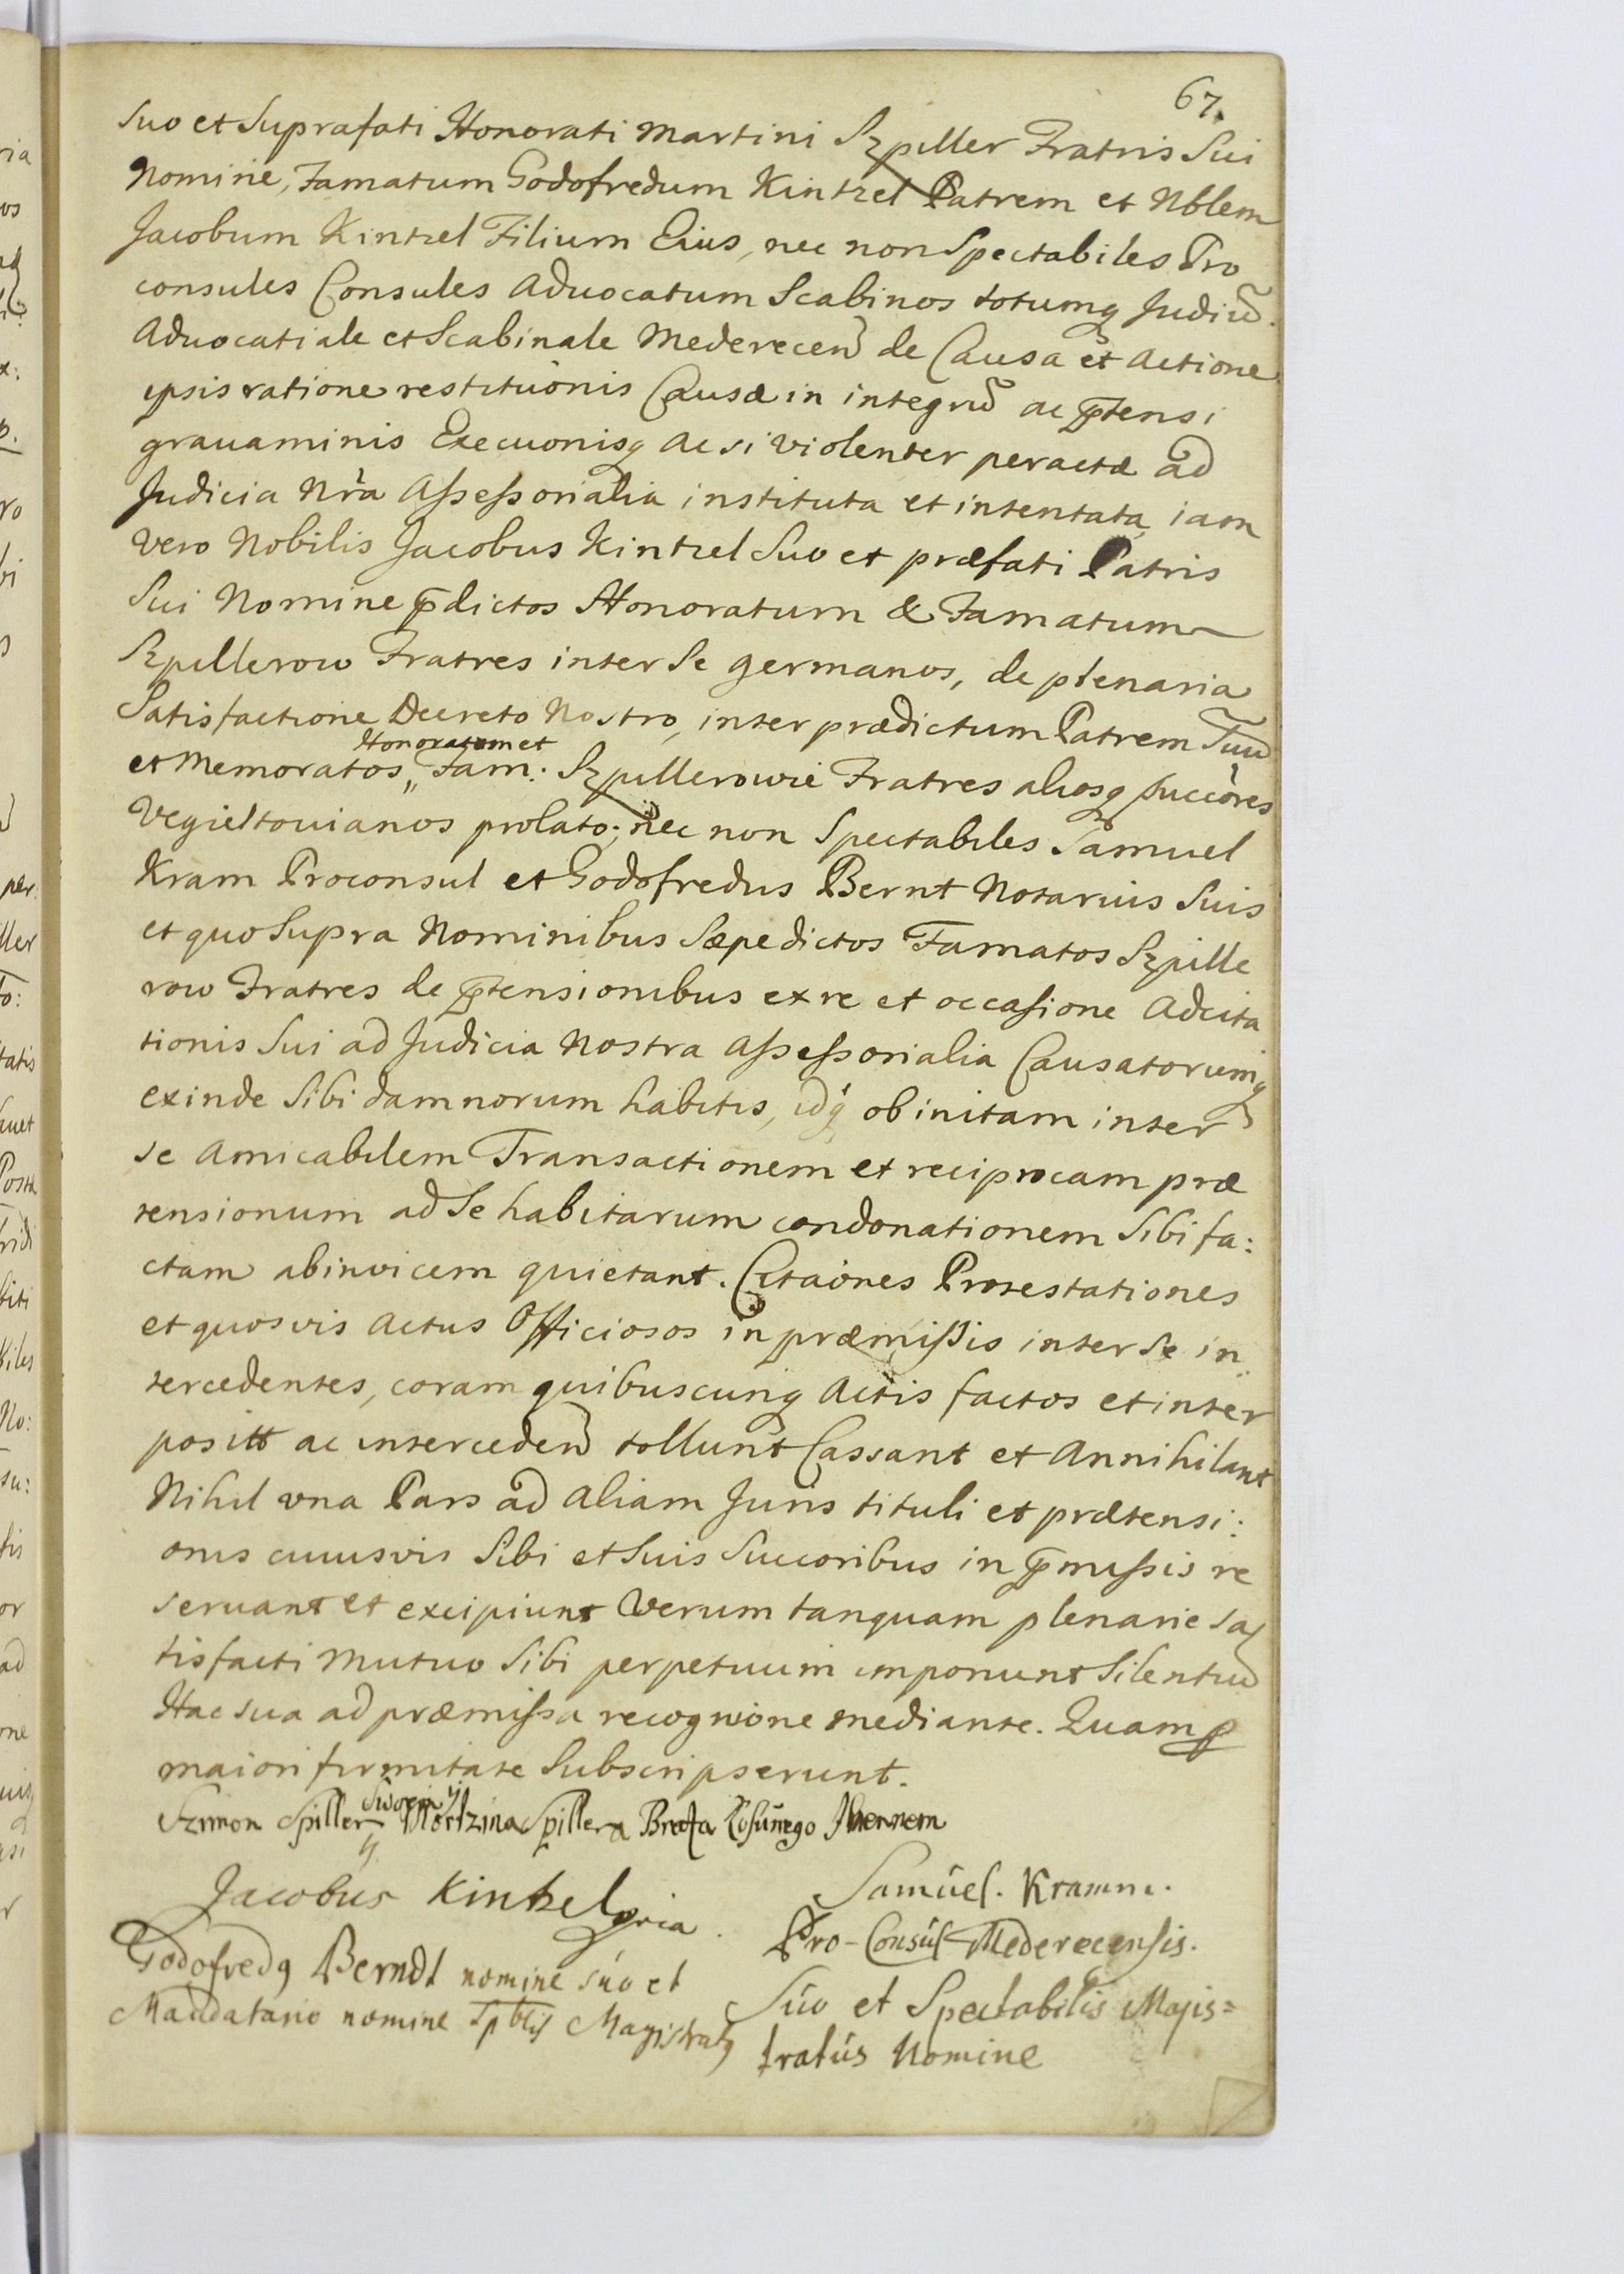 67.
Suo et Suprafati Honorati Martini Szpiller Fratris Sui
Nomine, Famatum Godofredum Kintzel Patrem et Nblem
Jacobum Kintzel Filium Eius, nec non Spectabiles Pro
consules Consules Advocatum Scabinos totumq Judiu͂
Advocatiale et Scabinale Mederecen͂ de Causa et Actione
ipsis ratione restituonis Causæ in integru͂ ac p͂tensi
gravaminis Execuonisq ac si violenter peractæ ad
Judicia Nr̃a Assessorialia instituta et intentata, iam
vero Nobilis Jacobus Kintzel Suo et præfati Patris
Sui Nomine p͂dictos Honoratum & Famatum
Szpillerow Fratres inter Se germanos, de plenaria
Satisfactione Decreto Nostro, inter prædictum Patrem Suu͂
Honoratum et
et Memoratos,, Fam: Szpillerowie Fratres aliosq Succores
Vegieltovianos prolato; nec non Spectabiles Samuel
Kram Proconsul et Godofredus Bernt Notarius Suis
et quo Supra Nominibus Sæpedictos Famatos Szpille
row Fratres de p͂tensionibus ex re et occasione Adcita
tionis Sui ad Judicia Nostra Assessorialia Causatorumq
exinde Sibi damnorum habitis, idq ob initam inter
se Amicabilem Transactionem et reciprocam præ
tensionum ad Se habitarum condonationem Sibi fa:
ctam abinvicem quietant. Citaiones Protestationes
et quosvis Actus Officiosos in præmissis inter Se in
tercedentes, coram quibuscunq Actis factos et inter
positt ac interceden͂ tollunt Cassant et Annihilant
Nihil una Pars ad aliam Juris tituli et prætensi:
onis cuiusvis Sibi et Suis Succoribus in p͂missis re
servant et excipiunt Verum tanquam plenarie sa
tisfacti Mutuo Sibi perpetuum imponunt Silentiu͂
Hac sua ad præmissa recognione mediante. Quam p
maiori firmitate Subscripserunt.
Swoiem y
Szimon Spiller Mortzina Spillera Brata
Jacobus Kintzel mpria
Samuel. Kramm.
Pro-Consul Mederecensis.
Suo et Spectabilis Magis=
tratus Nomine
Godofredq Berndt nomine suo et
Mandatario nomine Spblis Magistratq